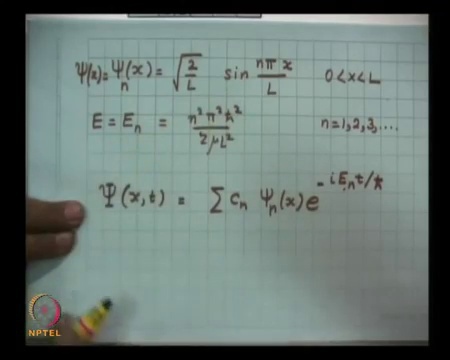 ψ(x) = ψ_n(x) = √(2/L) sin nπx/L 0 < x < L
E = E_n = n²π²ħ²/2μL² n = 1, 2, 3, ....
Ψ(x,t) = Σ c_n ψ_n(x) e^(-iE_n t/ħ)
NPTEL